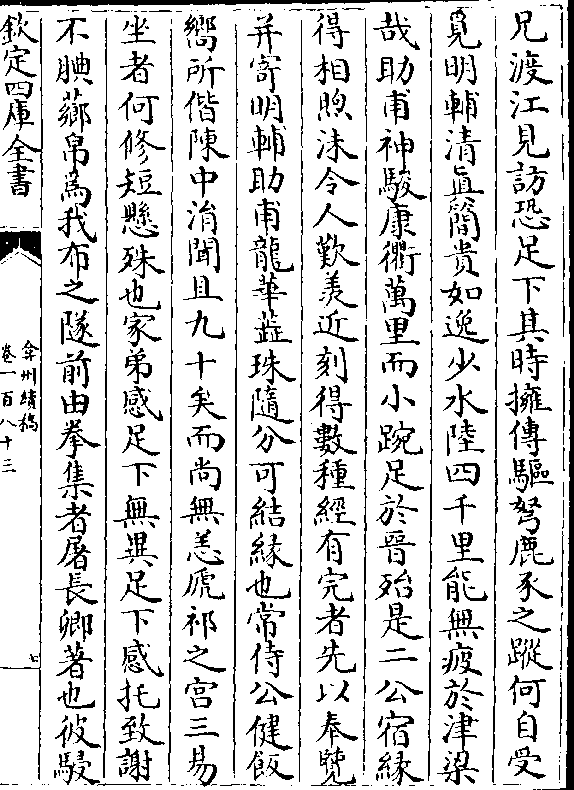 兄渡江見訪恐足下其時擁傳驅弩鹿豕之蹤何自受
覓明輔清眞簡貴如逸少水陸四千里能無疲於津梁
哉助甫神駿康衢萬里而小踠足於晉殆是二公宿緣
得相煦沫令人歎羨近刻得數種經有完者先以奉覽
并寄明輔助甫龍華蘂珠隨分可結緣也常侍公健飯
嚮所偕陳中涓聞且九十矣而尚無恙虒祁之宮三易
坐者何修短懸殊也家弟感足下無異足下感托致謝
不腆薌帛為我布之隧前由拳集者屠長卿著也彼騣
欽定四庫全書
弇州續稿
卷一百八十三
七